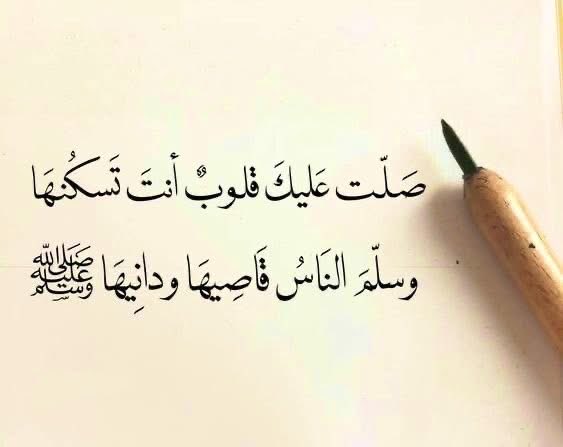 صَلّت عَليكَ قلوبٌ أنتَ تَسكُنهَا
وسلّمَ النَاسُ قَاصِيهَا ودانِيهَا ﷺ